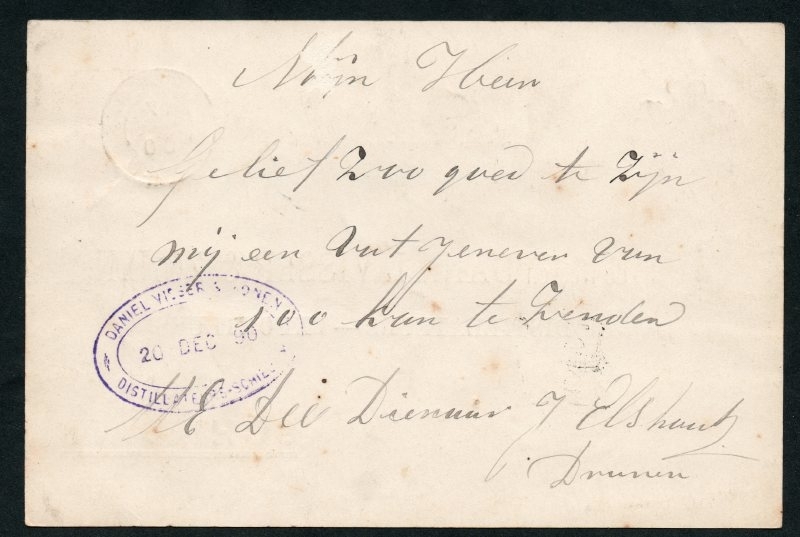 Mijn Heer
Gelief zoo goed te zijn
mij een vat jenever van
100 kan te zenden
DANIEL VISSER & ZONEN
20 DEC 90
DISTILLATEURS-SCHIEDAM
UE Dw Dienaar J Elshout
Drunen